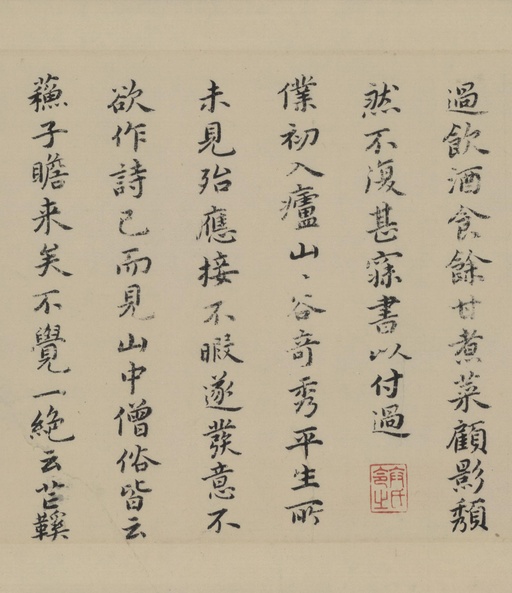 過飲酒食餘甘煮菜顧影頹
然不復甚寐書以付過
僕初入廬山〻谷奇秀平生所
未見殆應接不暇遂發意不
欲作詩已而見山中僧俗皆云
蘓子瞻来矣不覺一絶云芒鞵